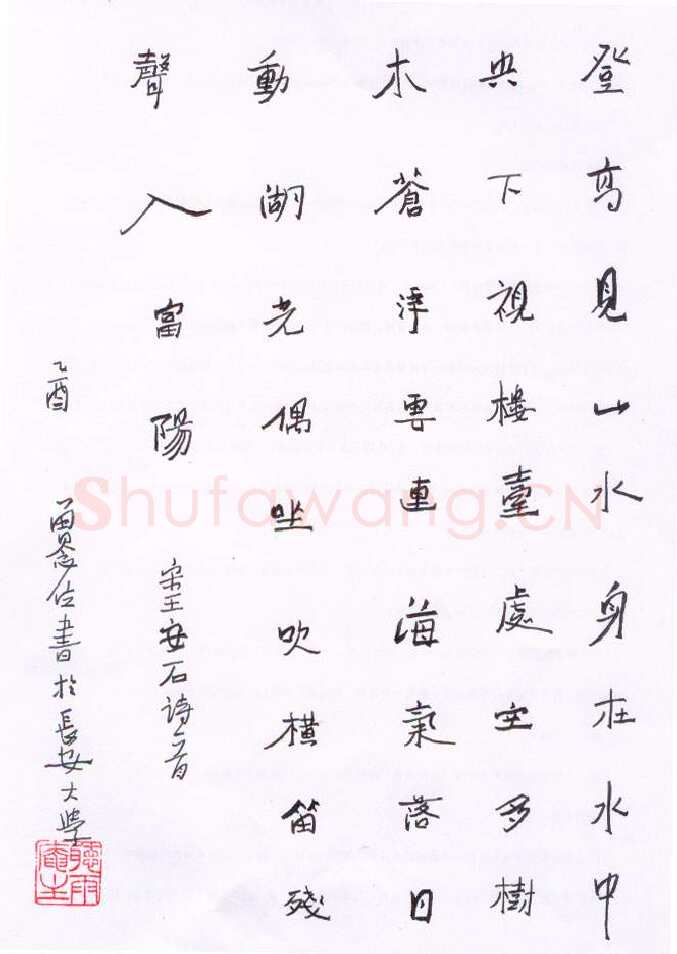 登高見山水身在水中
央下視樓臺處空多樹
木蒼浮雲連海氣落日
動湖光偶坐吹橫笛殘
聲入富陽
宋王安石诗一首
乙酉
書於長安大學
聽雨庵主
Shufawang.CN